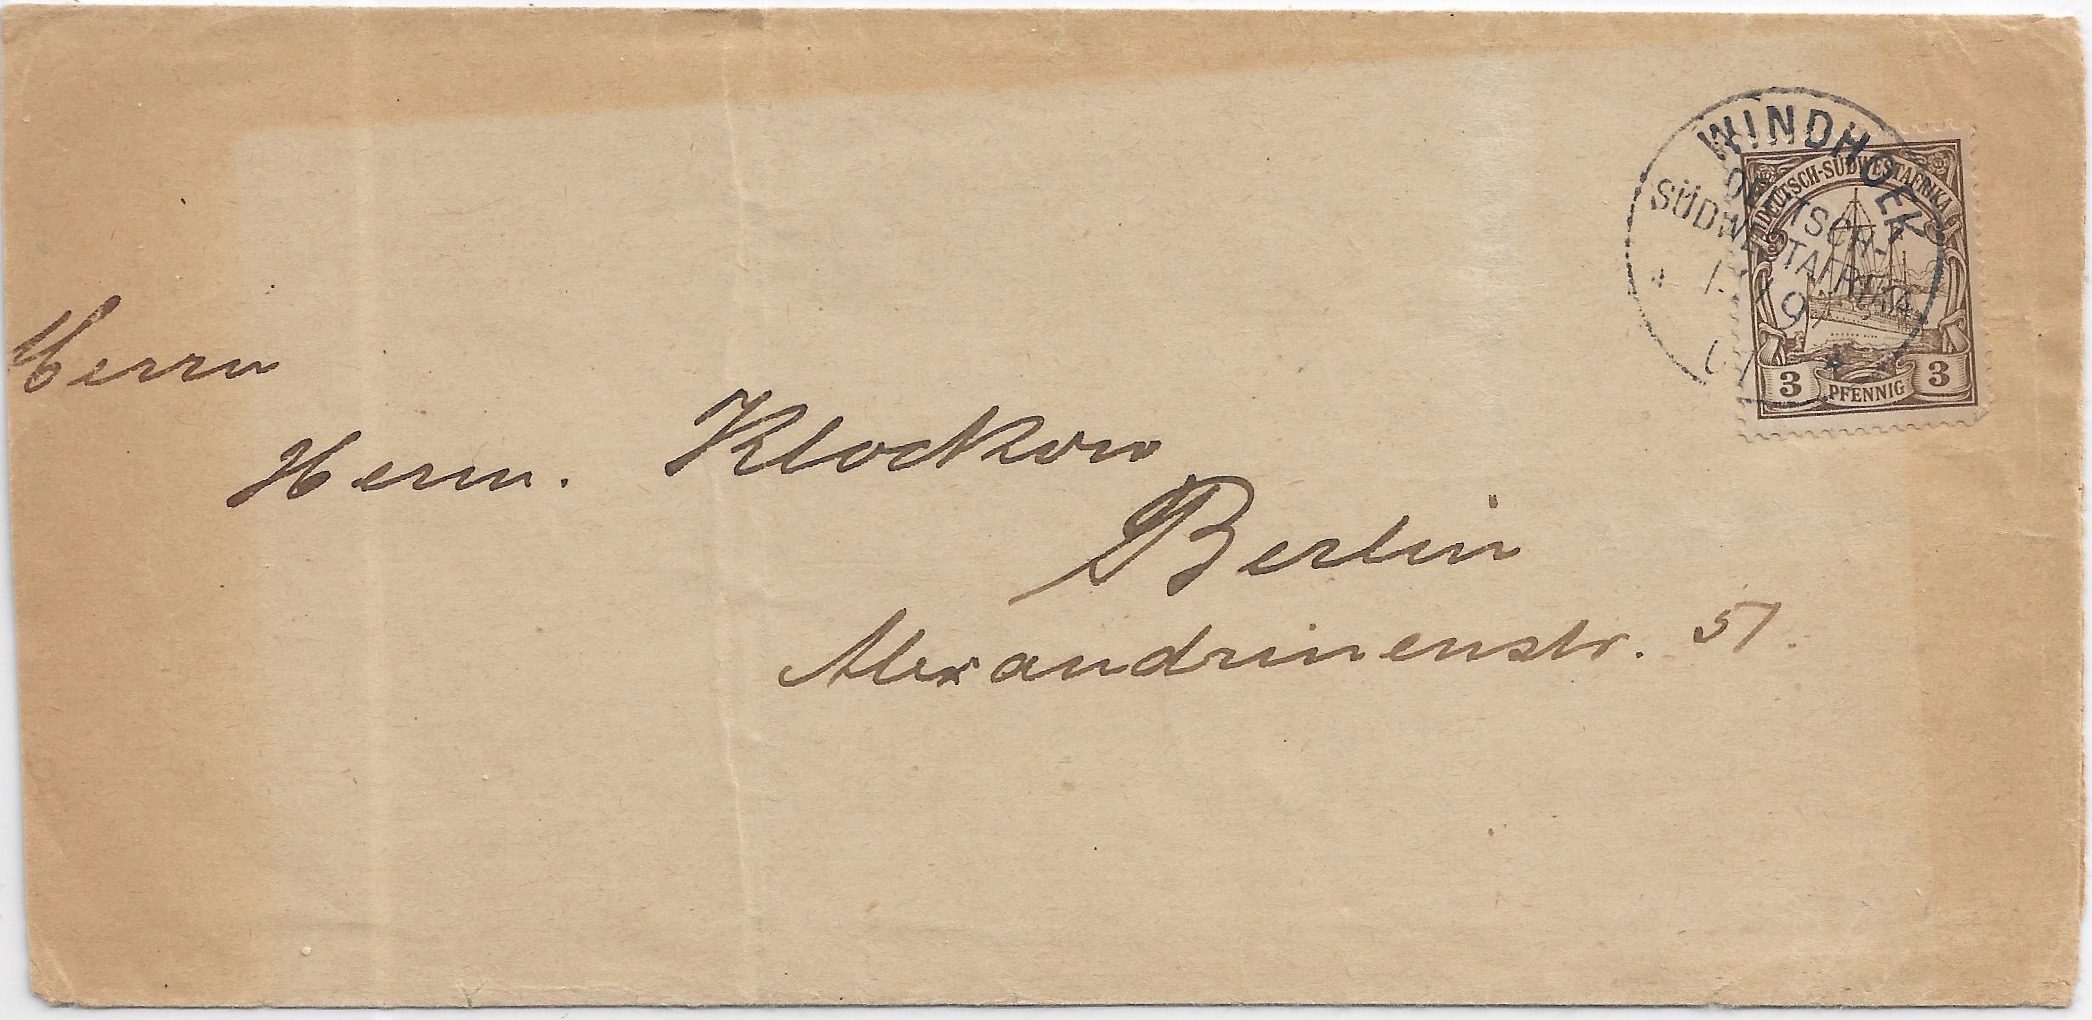 WINDHOEK
DEUTSCH-
SÜDWESTAFRIKA
DEUTSCH-SÜDWESTAFRIKA
3 PFENNIG 3
Herrn
Herm. Klockow
Berlin
Alexandrinenstr. 51.